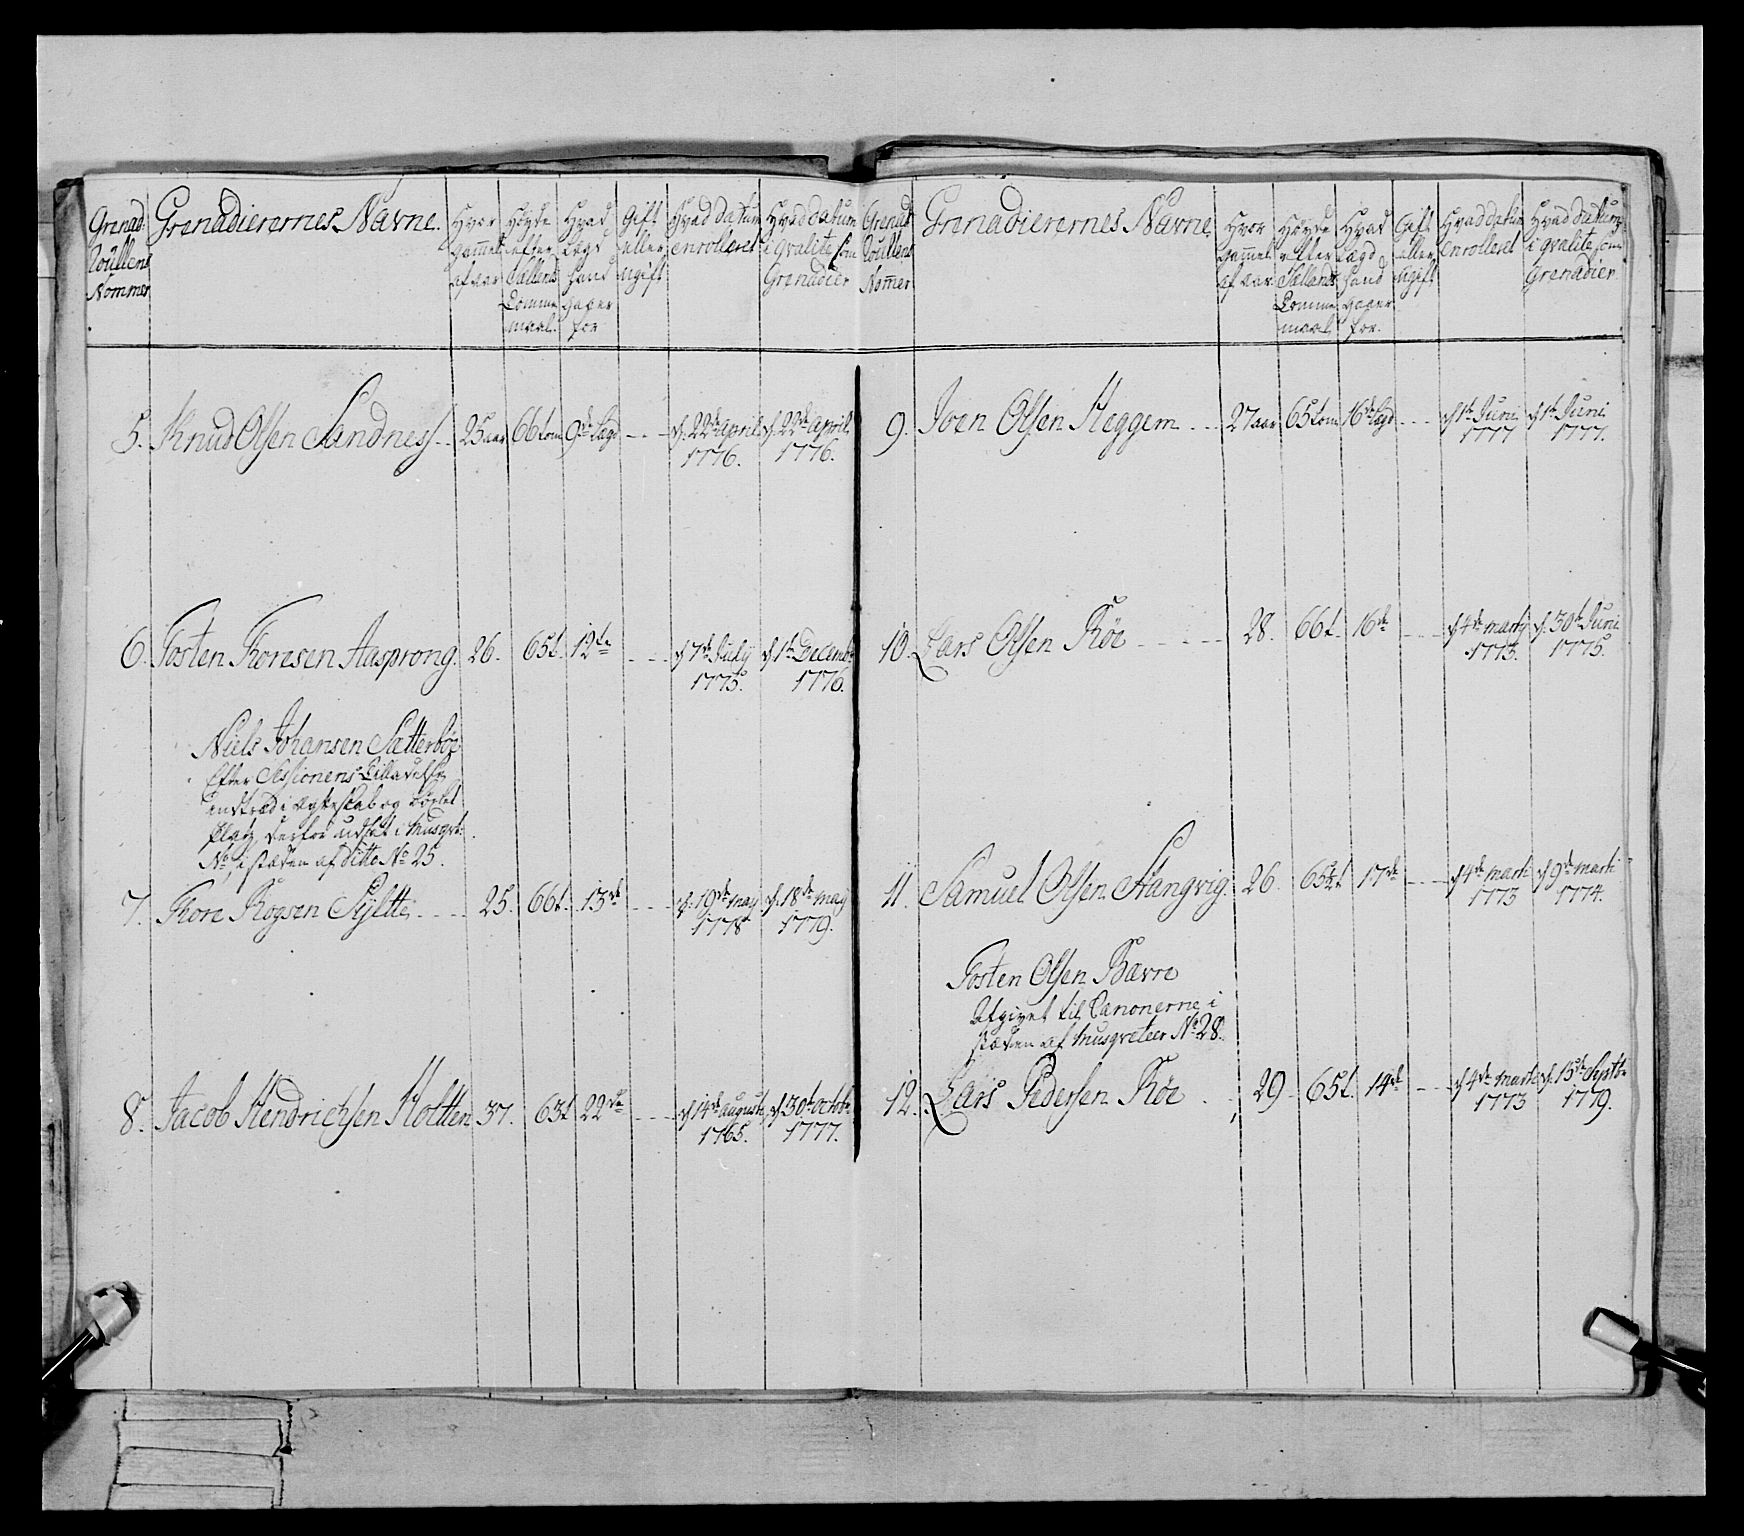 Grenad: Roullens Nommer
Grenadierernes Navne.
Hvor gammel af aar
Høyde efter Sællands Tomme maal.
Hvad Lægd hand gaaer for
Gift eller ugift
Hvad Datum enrolleret
Hvad Datum i qvalite som Grenadeer
5. Knud Olsen Sandness .. 25 aar 66 tom 9de Lægd ... d: 22de April 1776. d: 22de April 1776.
6. Tosten Thoresen Aasprong. 26. 65 t. 12te ... d 7de Julÿ 1775. d. 1te Decembr 1776.
Niels Johansen Sætterbøe
Efter Sessionens Tilladelse
indtræd i ægteskab og
Platz, derfor udsat i Musqvt:
No i stæden af ditto No 25.
7. Thore Rogsen Sÿltte .... 25. 66 t. 13de ... d: 19de may 1778 d. 18de may 1779.
8. Jacob Hendrichsen Holtten 37. 63 t 22de ... d 14de august 1765. d 30te octobr 1777.
Grenad Roullens Nomer
Grenadierernes Navne.
Hvor gammel af aar
Høyde efter Sællands Tomme maal
Hvad Lægd hand gaaer for.
Gift eller ugift
Hvad Datum enrolleret
Hvad Datum i qvalite som Grenadier
9. Iven Olsen Heggem ... 27 aar 65 tom 16de Lægd ... d 1te Juni 1777 d 1te Juni 1777.
10. Lars Olsen Røe ..... 28. 66 t. 16de ... d 4de martÿ 1773. d. 30te Juni 1775.
11. Samuel Olsen Stangvig. 26. 65½ t 17de ... d 4de marti 1773 d 9de marti 1774.
Tosten Olsen Bævre
Afgivet til Canonerne i
stæden af Musqveteer No 28.
12. Lars Pedersen Røe .. 29 65 t. 14de ... d 4de marti 1773 d. 15de Septbr 1779.